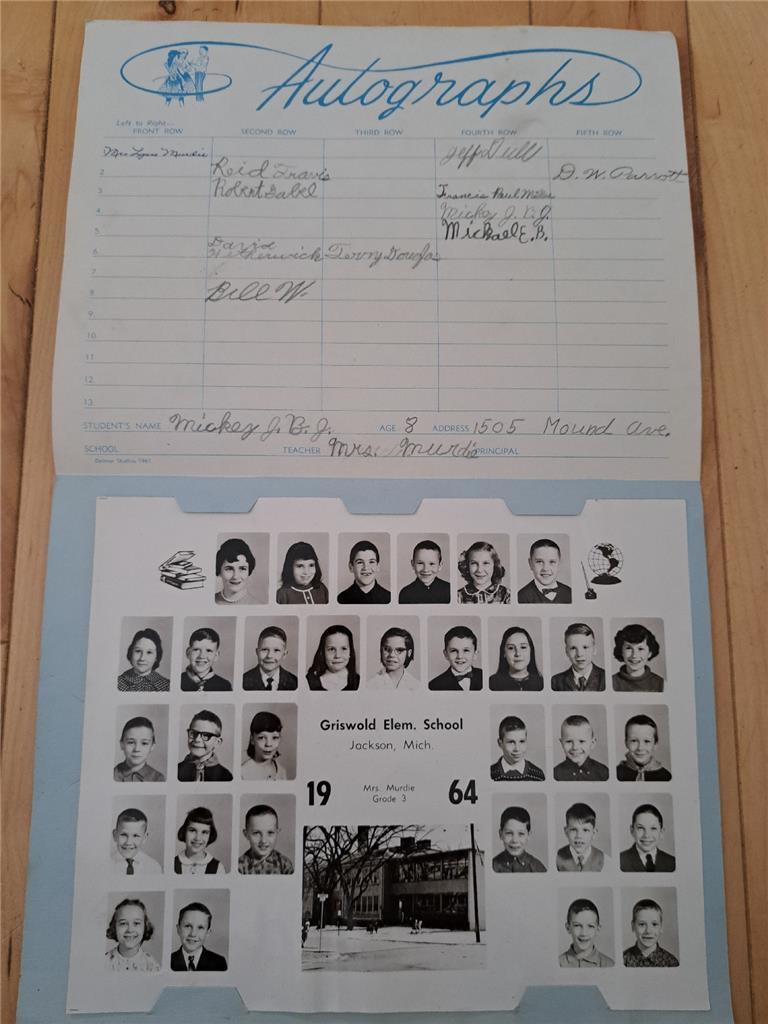 Autographs
Left to Right—
FRONT ROW SECOND ROW THIRD ROW FOURTH ROW FIFTH ROW
Mrs Lynn Murdie Jeff Dull
2 Reid Travis D. W. Parrott
3 Robert Gabel Francis Paul Miller
4. Mickey J. B. J.
5. Michael E. B.
6. David
Terry Douglas
7.
8 Bill W.
9.
10
11
12.
13.
STUDENT'S NAME Mickey J. B. J. AGE 8 ADDRESS 1505 Mound Ave.
SCHOOL TEACHER Mrs. Murdie PRINCIPAL
Delmar Studios 1961
Griswold Elem. School
Jackson, Mich.
19 Mrs. Murdie 64
Grade 3